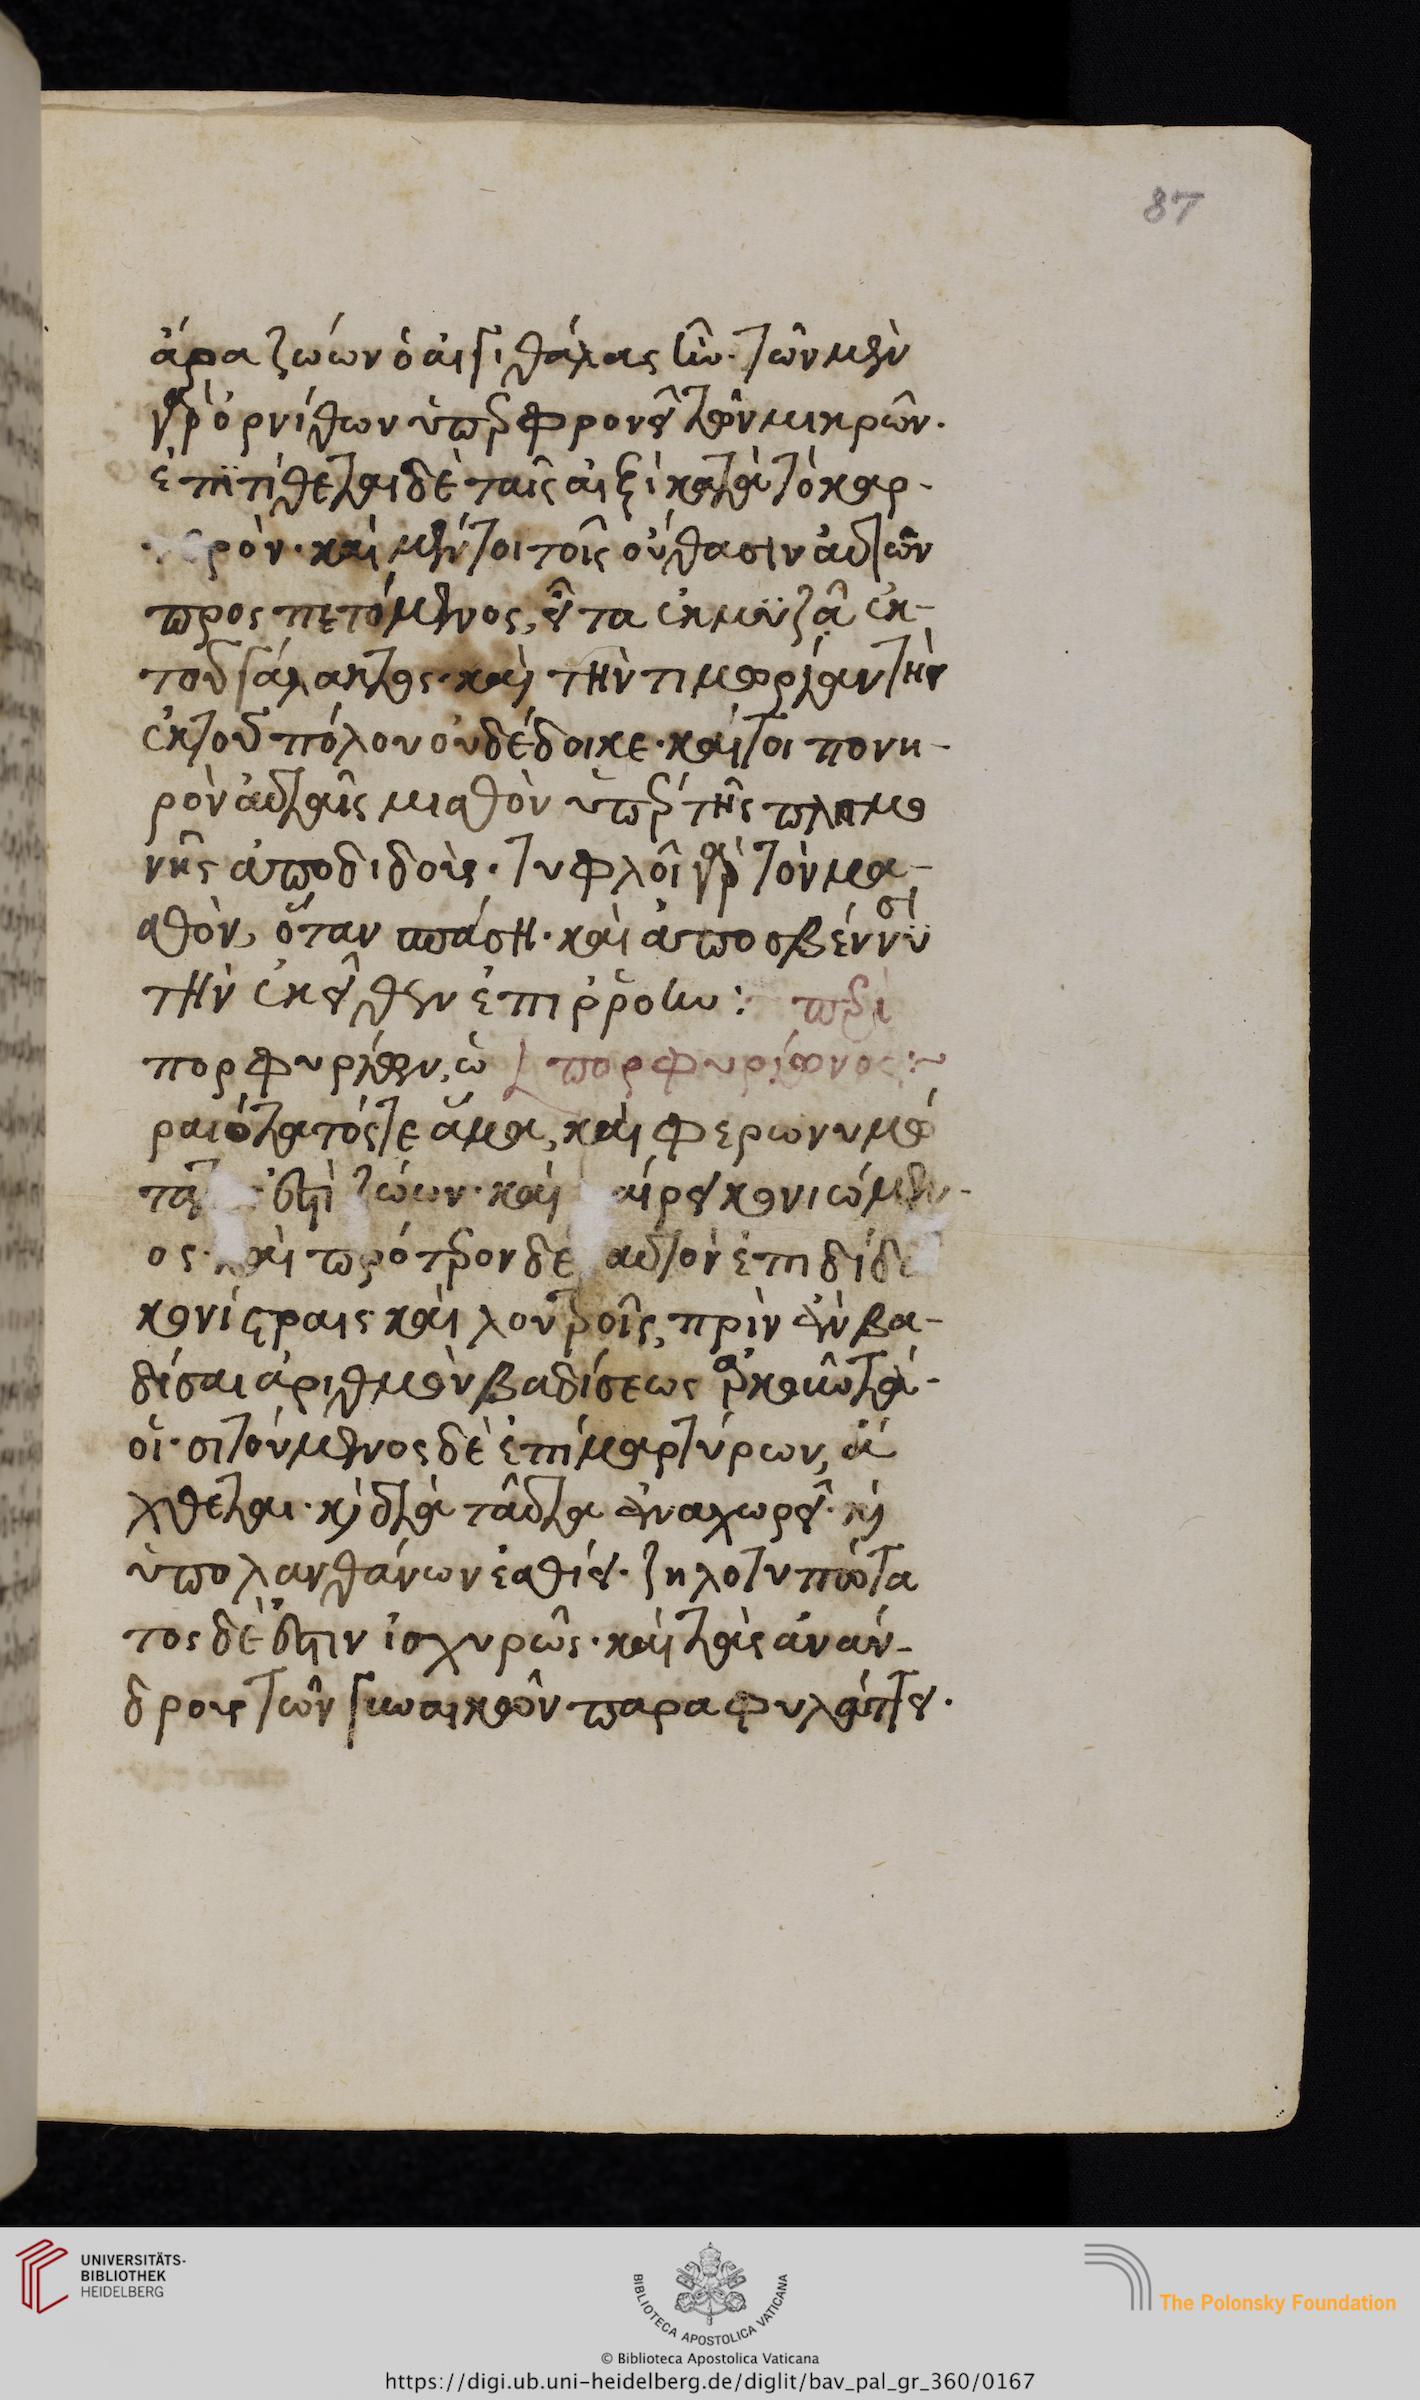 ἄρα ζώων ὁ αἰγιθάλας ἦν. τῶν μὲν
γὰρ ὀρνίθων ὑπερφρονεῖ τῶν μικρῶν.
ἐπιτίθεται δὲ ταῖς αἰξὶ κατὰ τὸ καρ-
τερὸν. καὶ μέντοι τοῖς οὔθασιν αὐτῶν
προσπετόμενος, εἶτα ἐκμυζᾶ ἐκ-
τοῦ γάλακτος. καὶ τὴν τιμωρίαν τὴν
ἐκ τοῦ πόλου οὐ δέδοικε. καίτοι πονη-
ρὸν αὐταῖς μισθὸν ὑπὲρ τῆς πλησμο
νῆς ἀποδιδοὺς. τυφλοῖ γὰρ τὸν μα-
σθὸν, ὅταν σπάση. καὶ ἀποσβέννυσι
τὴν ἐκεῖθεν ἐπιρροὴν: περὶ
πορφυρίων, ὡ πορφυρίωνος:~
ραιότατός τε ἅμα, καὶ φερωνυμώ
τατ ἐστὶ ζώων. καὶ αίρει κονιώμεν-
ος. καὶ πρότερον δὲ αὐτὸν ἐπιδίδω
κονίστραις καὶ λουτροῖς, πρὶν ἀν βα-
δίσαι ἀριθμὸν βαδίσεως ἀρκοῦντά-
οἱ. σιτούμενος δὲ ἐπὶ μαρτύρων, ἄ
χθεται. καὶ διὰ ταῦτα ἀναχωρεῖ. καὶ
ὑπολανθάνων ἐσθίει. ζηλοτυπώτα
τος δὲ ἐστιν ἰσχυρῶς. καὶ τὰς ἀνάν-
δρους τῶν γυναικῶν παραφυλάττει.
87
UNIVERSITÄTS-
BIBLIOTHEK
HEIDELBERG
BIBLIOTECA APOSTOLICA VATICANA
The Polonsky Foundation
© Biblioteca Apostolica Vaticana
https://digi.ub.uni-heidelberg.de/diglit/bav_pal_gr_360/0167